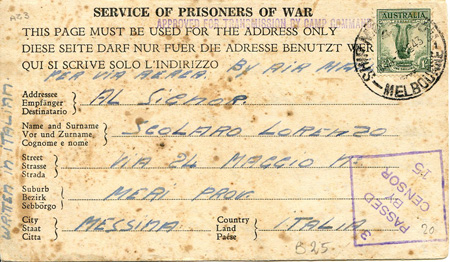 A53
SERVICE OF PRISONERS OF WAR
APPROVED FOR TRANSMISSION BY CAMP
THIS PAGE MUST BE USED FOR THE ADDRESS ONLY
DIESE SEITE DARF NUR FUER DIE ADRESSE BENUTZT WER
QUI SI SCRIVE SOLO L'INDIRIZZO
PER VIA AEREA. BY AIR MAIL
AUSTRALIA
MELBOURNE
WRITTEN IN ITALIAN
Addressee
Empfänger
Destinatario
AL SIGNOR.
Name and Surname
Vor und Zurname
Cognome e nome
SCOLARO LORENZO
Street
Strasse
Strada
VIA 24 MAGGIO
Suburb
Bezirk
Sebborgo
MERI PROV.
City
Staat
Citta
MESSINA
Country
Land
Paese
ITALIA
PASSED
BY
CENSOR
15
3
20
B25